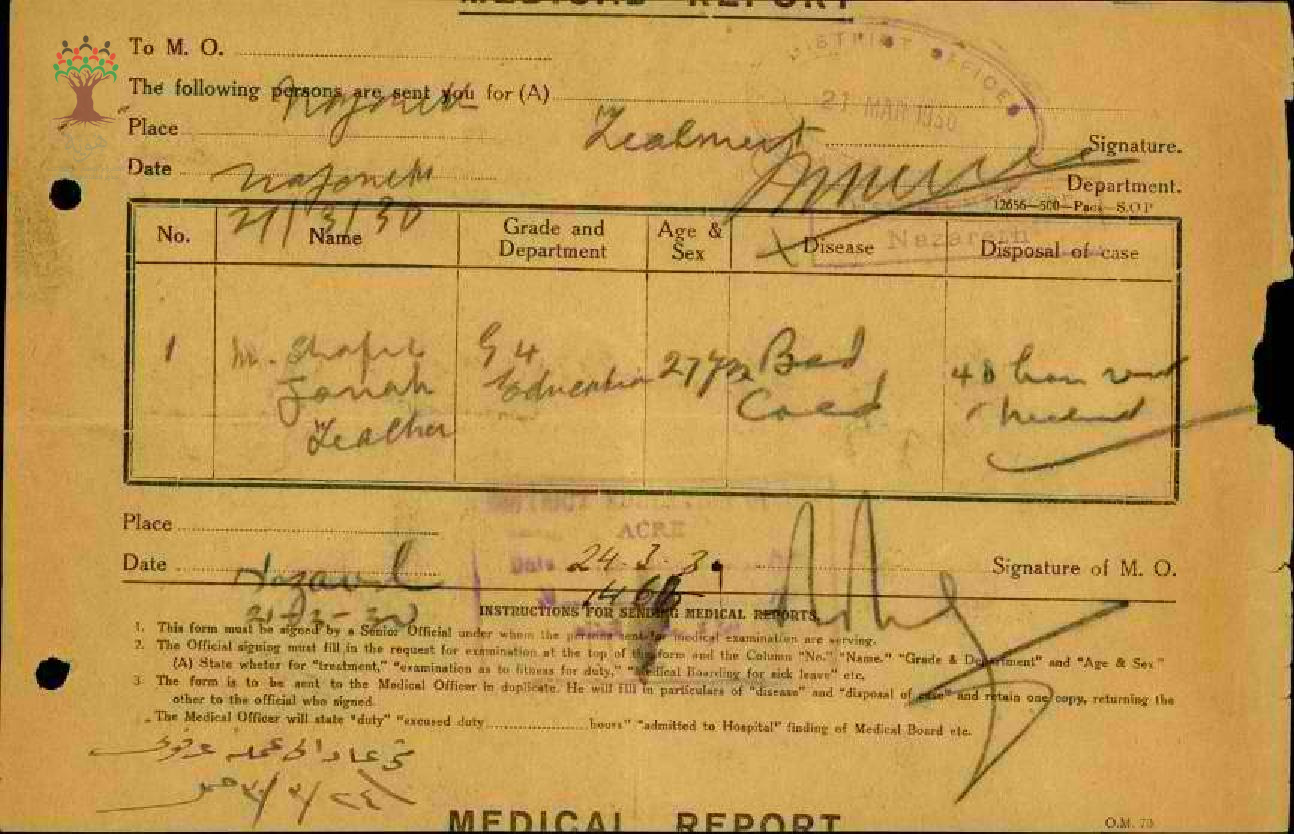 MEDICAL REPORT
To M. O.
The following persons are sent you for (A)
DISTRICT OFFICES
21 MAR 1930
Place
Treatment
Signature.
Date
Department.
12656—500—Pads—S.O.P
21/3/30
Nazareth
No. Name Grade and Department Age & Sex Disease Disposal of case
1 M. Shafic G 4 27 yrs Bad
Education Cold
Teacher
Place
ACRE
Date Date 24.3.30 Signature of M. O.
21-3-30
INSTRUCTIONS FOR SENDING MEDICAL REPORTS.
1. This form must be signed by a Senior Official under whom the persons sent for medical examination are serving.
2. The Official signing must fill in the request for examination at the top of the form and the Column "No." "Name." "Grade & Department" and "Age & Sex"
(A) State wheter for "treatment," "examination as to fitness for duty," "Medical Boarding for sick leave" etc.
3. The form is to be sent to the Medical Officer in duplicate. He will fill in particulars of "disease" and "disposal of case" and retain one copy, returning the
other to the official who signed.
The Medical Officer will state "duty" "excused duty ............ hours" "admitted to Hospital" finding of Medical Board etc.
MEDICAL REPORT
O.M. 73